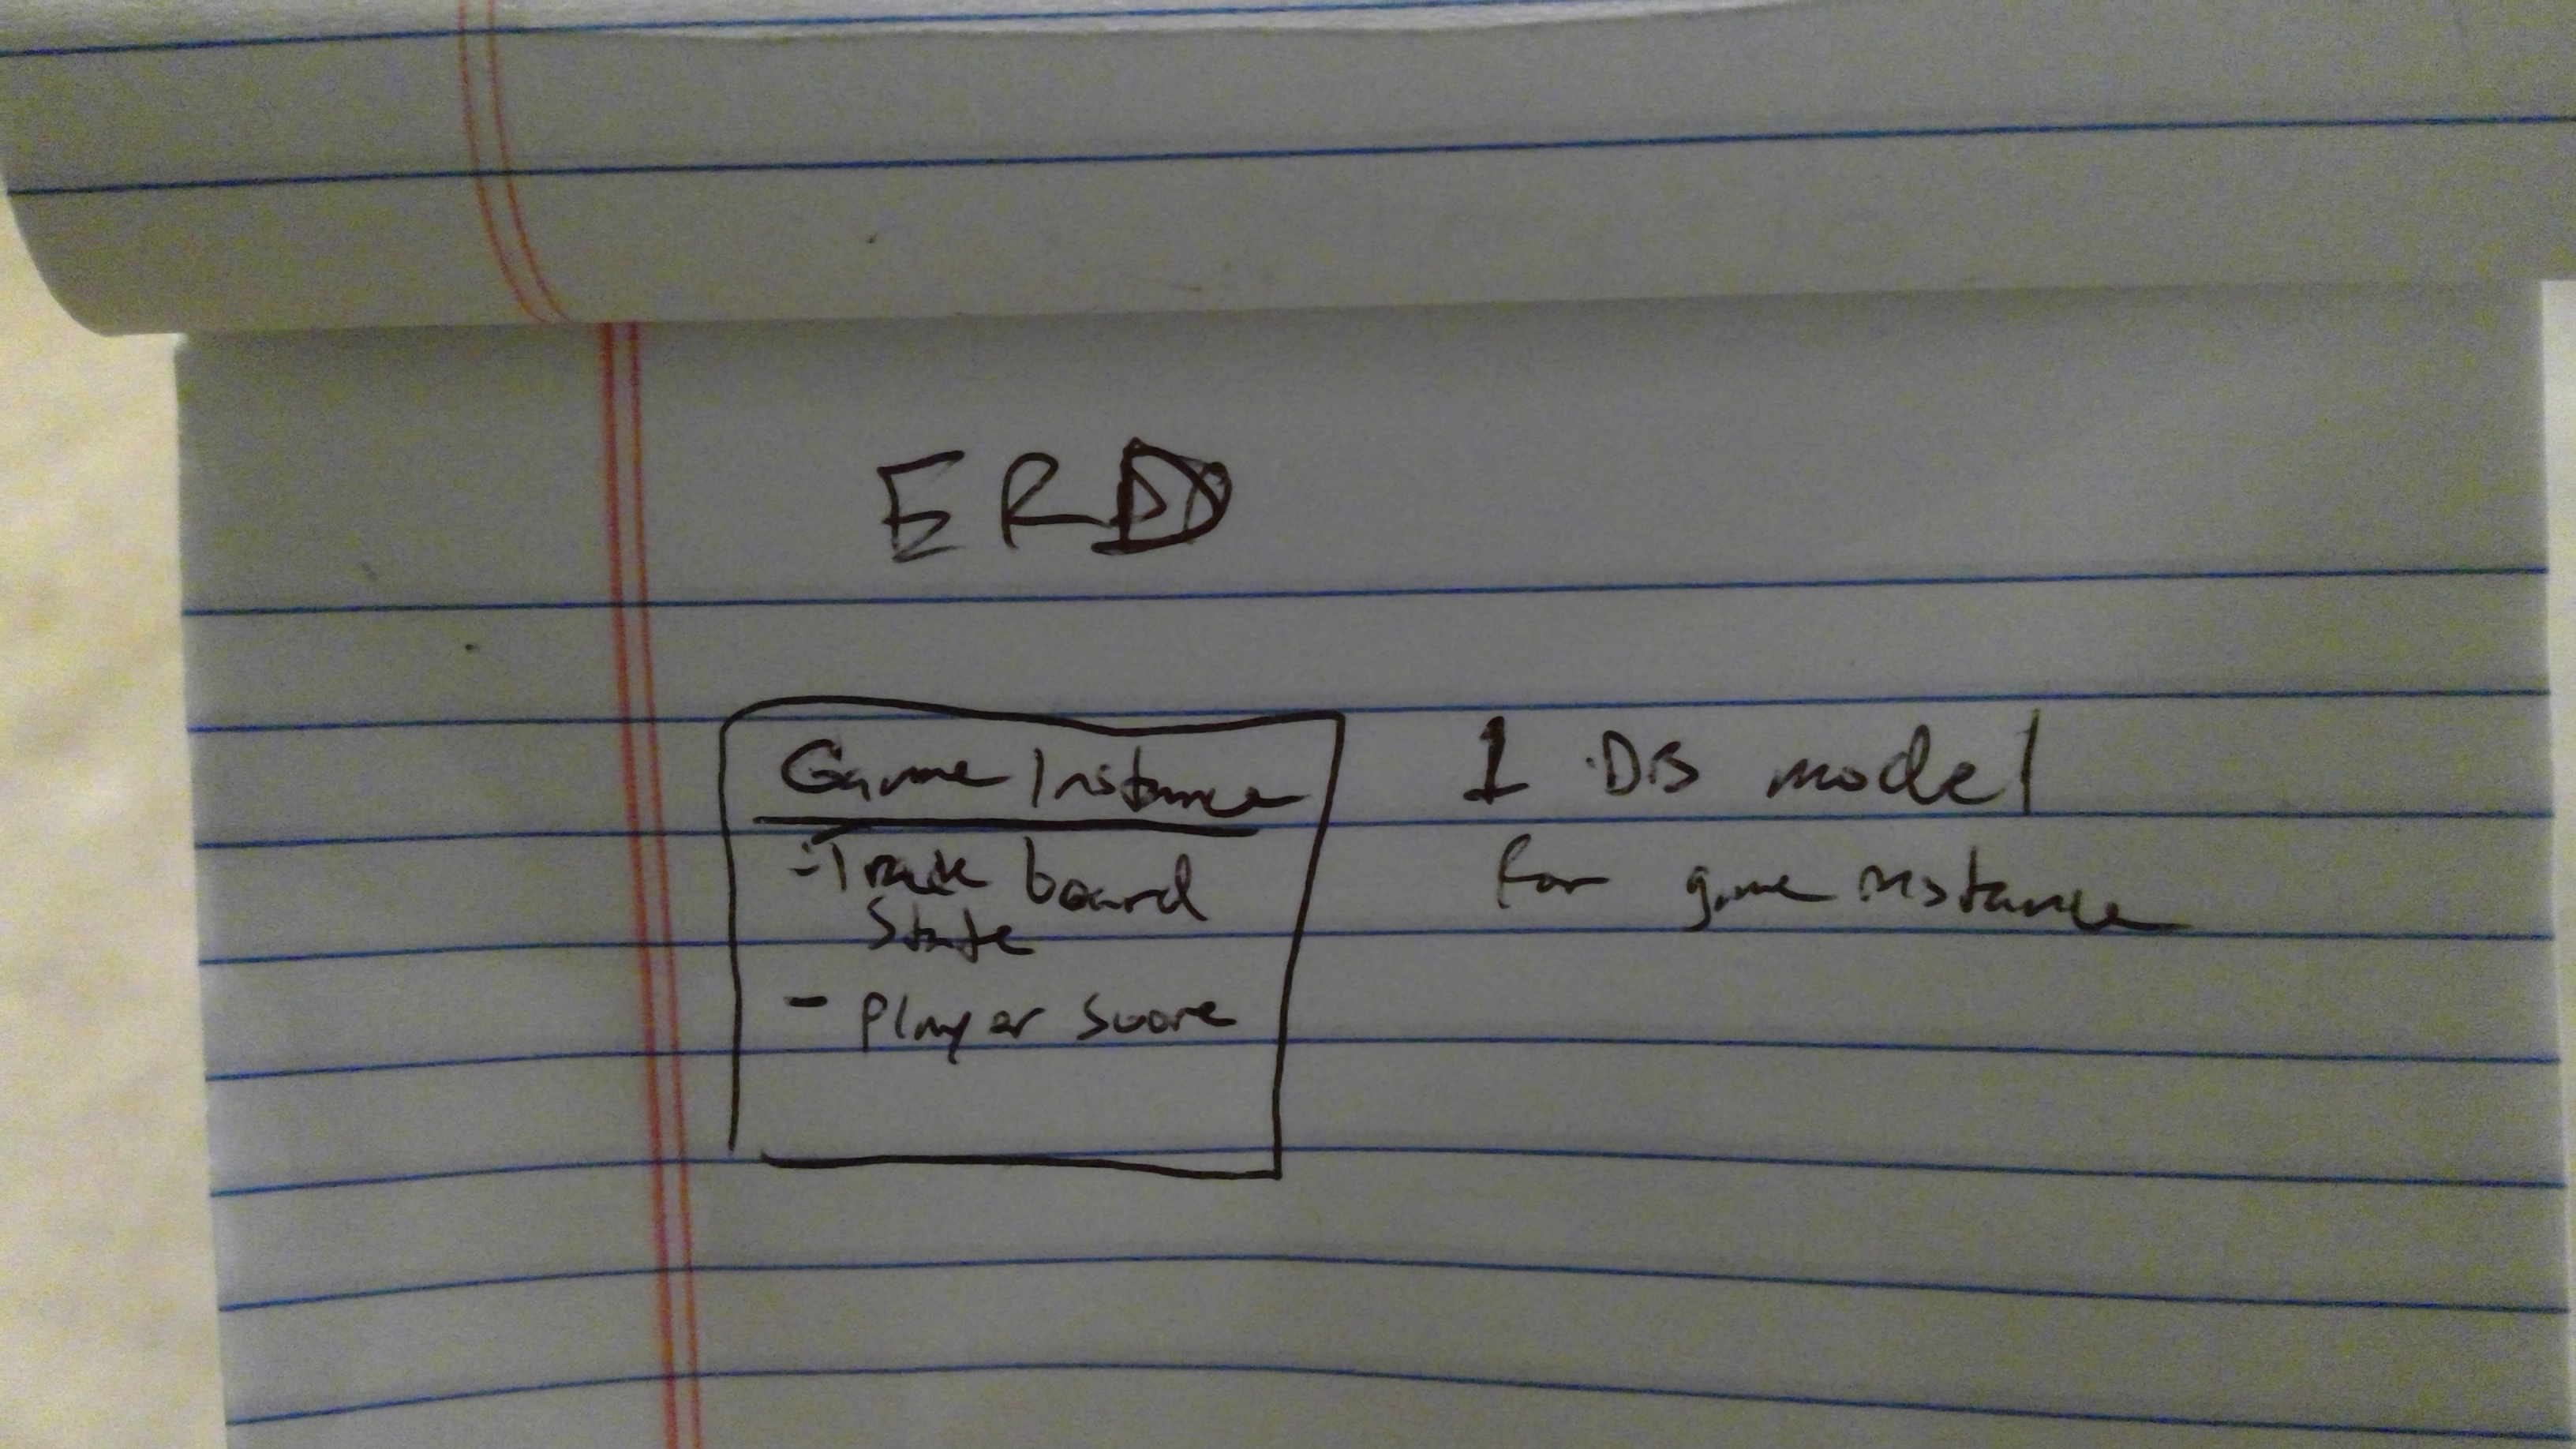 ERD
Game Instance
- Track board
state
- Player score
1 DB model
for game instance